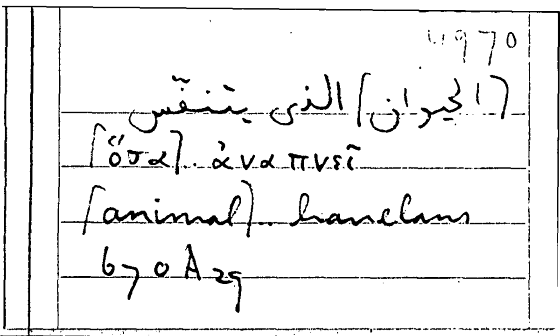 4970
[الحيوان] الذى يتنفّس
[ὅσα]. ἀναπνεῖ
[animal].. hanelans
670 A 29